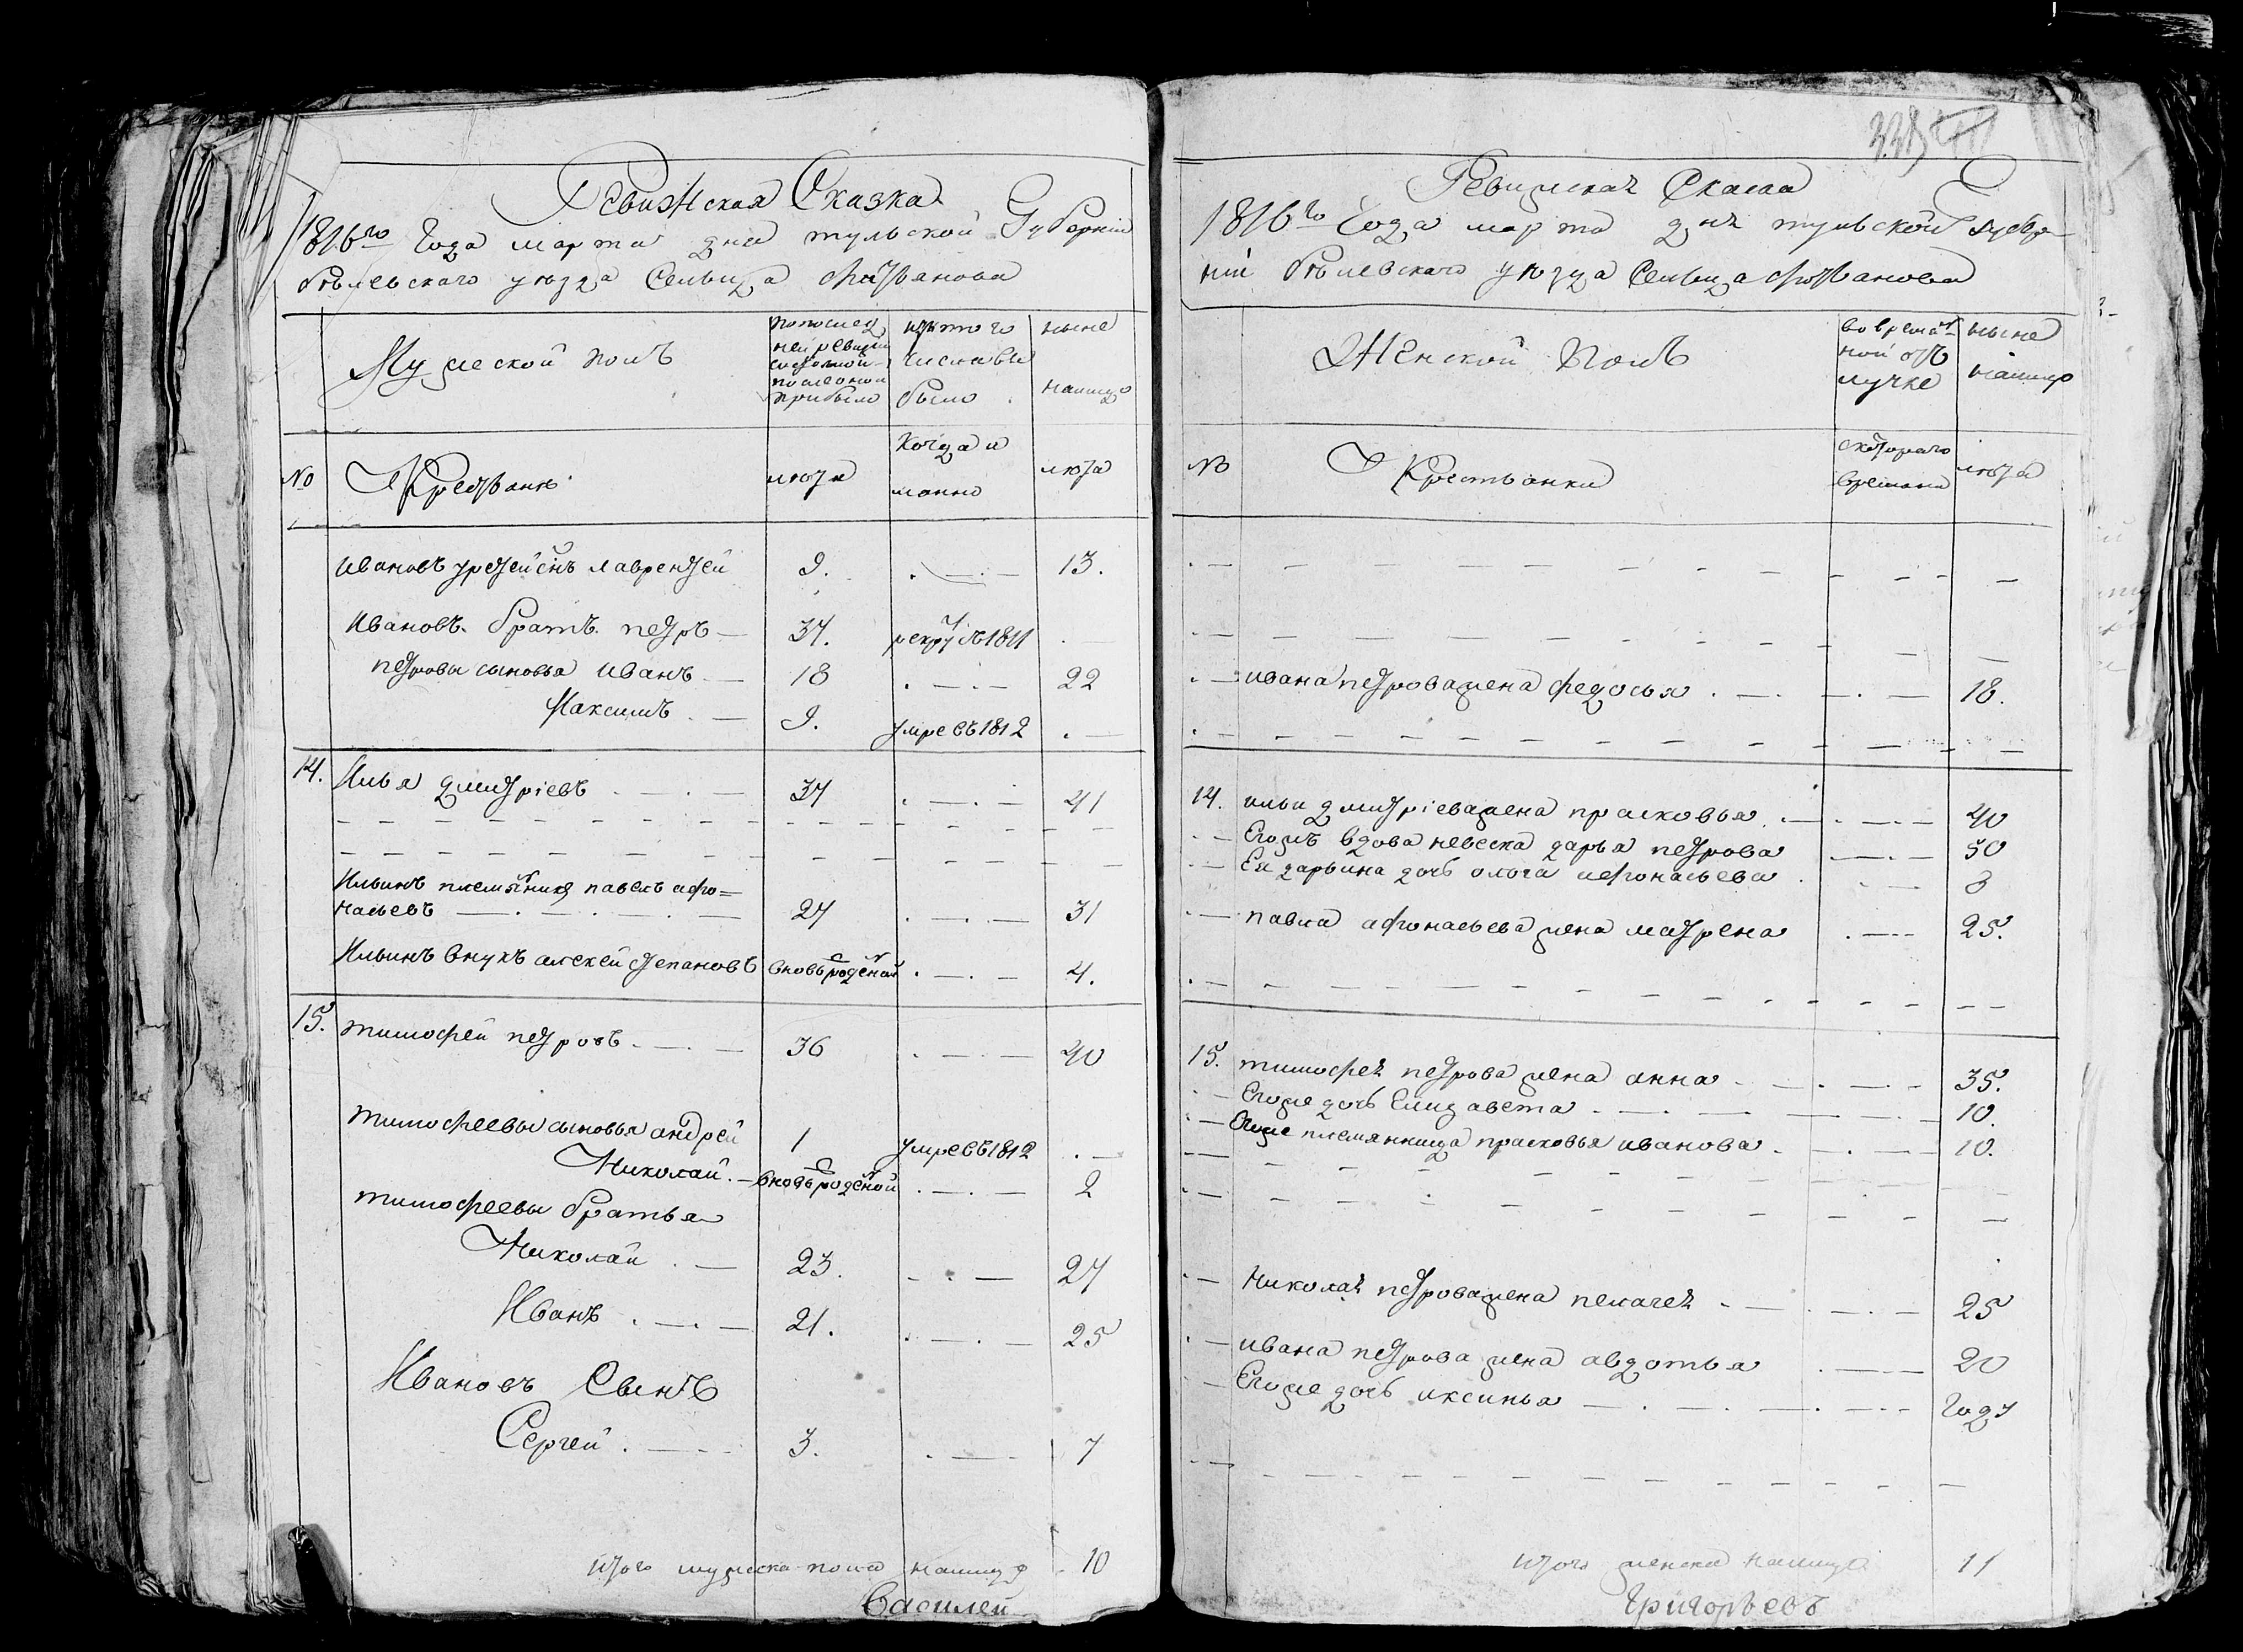 Ревизская Сказка
1816го Года марта дня тульской Губернии
бѣлевскаго уѣзда Сельца
Мужеской полъ
попослед
ней ревизии
состояло и
после оной
прибыло
изтого
числа вы
было
ныне
налицо
№
Крестьяне
лета
Когда и
лета
Ивановъ третей снъ лаврентей 9. 13.
Ивановъ братъ петръ 37. рекрутъ 1811
петровы сыновья иванъ 18 22
Максимъ 9. умре въ 1812
14. Илья дмитріевъ 37 41
Ильинъ племянникъ павелъ афо=
насьевъ 27 31
Ильинъ внукъ алексей степановъ вновь рожденой 4.
15. тимофей петровъ 36 40
тимофеевы сыновья андрей 1 умре въ 1812
Николай вновь рожденой 2
тимофеевы братья
Николай 23. 27
Иванъ 21. 25
Ивановъ Сынъ
Сергей 3. 7
итого мужеска пола налицо 10
Василей
Ревизская Сказка
1816го Года марта дня тульской губер
нии бѣлевскаго уѣзда Сельца
Женской полъ
во времян
ной отъ
лучке
ныне
налицо
№
Крестьянки
с котораго
времени
лета
ивана петрова жена федосья 18.
14. ильи дмитріева жена прасковья 40
Егожъ вдова невеска дарья петрова 50
Ея дарьина дочь олга афонасьева 3
павла афонасьева жена матрена 25.
15. тимофея петрова жена анна 35.
Егоже дочь Елизавета 10.
Егоже племянница прасковья иванова 10.
Николая петрова жена пелагея 25
ивана петрова жена авдотья 20
Егоже дочь аксинья Году
итого женска налицо 11
Григорьевъ